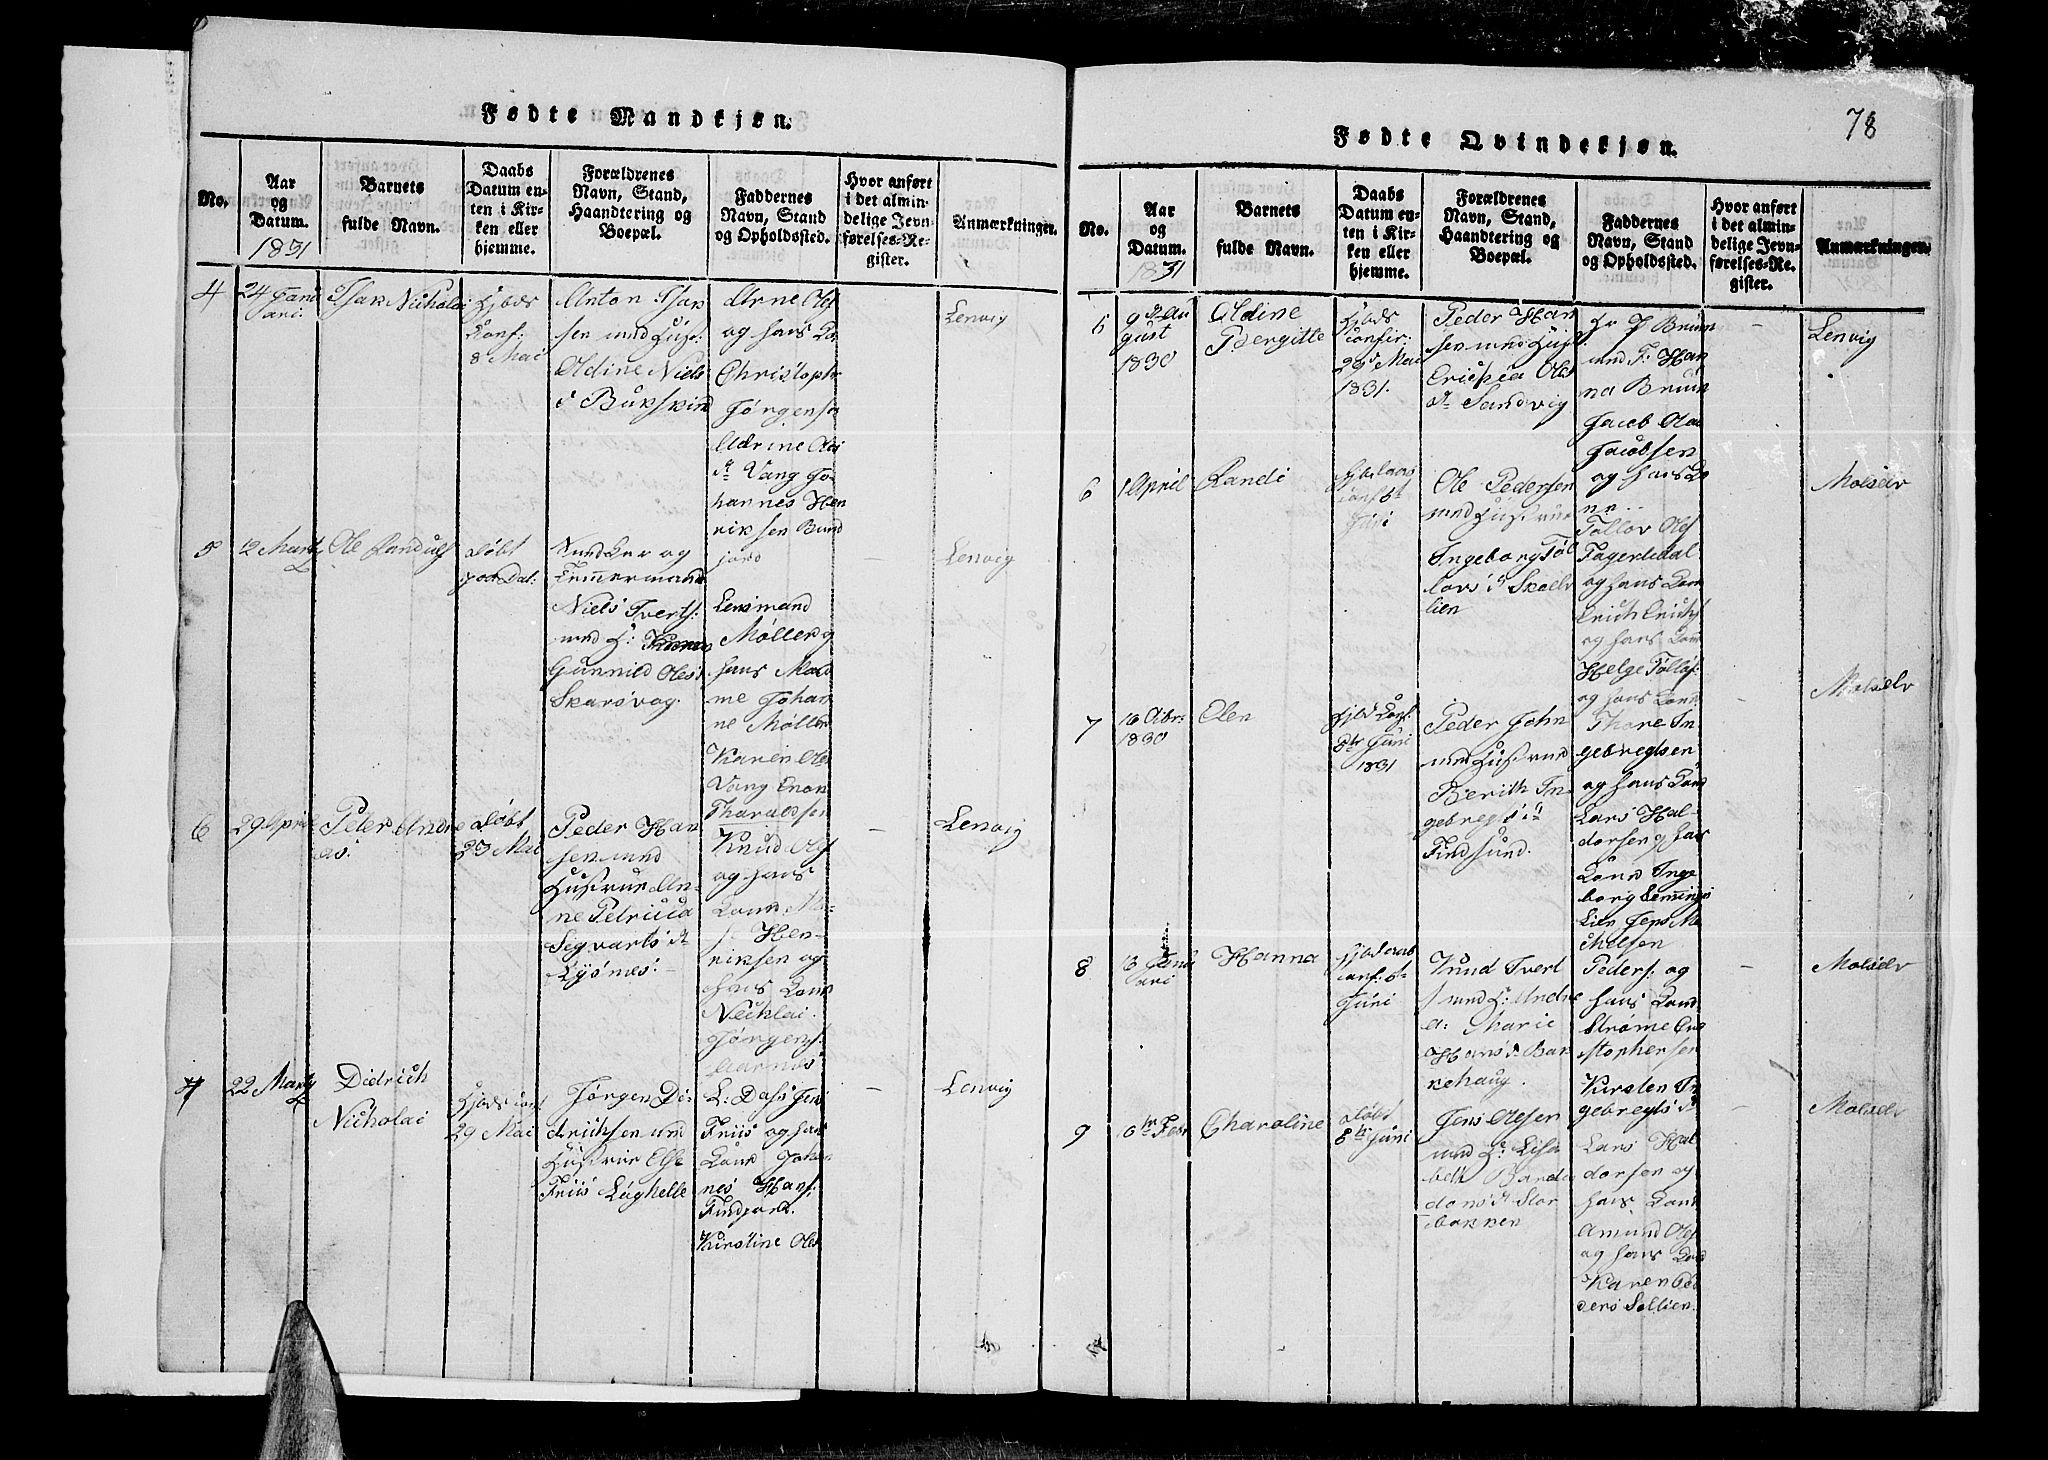 Fødte Mandkjøn.
No.
Aar
og
Datum.
1831
Barnets
fulde Navn.
Daabs
Datum en-
ten i Kir-
ken eller
hjemme.
Forældrenes
Navn, Stand,
Haandtering og
Boepæl.
Faddernes
Navn, Stand
og Opholdssted.
Hvor anført
i det almin-
delige Jevn-
førelses-Re-
gister.
Anmærkninger.
4
24 Janu
ari.
Isak Nicholai
Hjods
Conf:
8 Mai
Anton Isak
sen med Hust:
Oldine Niels
d Bukskind
Arne Ols
og hans Ko
Christoph
Jørgensen
Adrine Ols
d Vang Jo
hannes Hen
riksen Bund
jord
Lenvig
5
12 Marty
Ole Randulf
døbt
Tømmermand
Niels Ivers:
med H:
Gunnild Olesd
Skarsvog.
Lensmand
Møller og
hans Mad
me Johan
ne Møller
Karen Ols
Vang Enok
Tharaldsen
Lenvig
6
29 April
Peter Andre
as
døbt
23 Mai
Peder Han
sen med
Hustrue An
ne Petricia
Segvarts d
Lysnes.
Knud Ols
og hans
Kone
Hen-
riksen og
hans Kone
Nichlai
Jørgens:
Aarnes
Lenvig
7
22 Marty
Didrich
Nicholai
Hjods Conf
29 Mai
Jørgen Di-
drichsen med
Hustrue Else
Friis Laghelle
L: Dass Jens
Friis og hans
Kone Johan
nes Hans:
Findjord.
Kirstine Ols
Lenvig
78
Fødte Qvindekjøn.
No.
Aar
og
Datum.
1831
Barnets
fulde Navn.
Daabs
Datum en-
ten i Kir-
ken eller
hjemme.
Forældrenes
Navn, Stand,
Haandtering og
Boepæl.
Faddernes
Navn, Stand
og Opholdssted.
Hvor anført
i det almin-
delige Jevn-
førelses-Re-
gister.
Anmærkninger.
5
9de Au
gust
1830
Oldine
Bergitte
Hjods
Confir:
29d Mai
1831.
Peder Han
sen med Hust
Ols
d Sandvig
Hr P Bruun
med F: Han
na Bruun
Jacob Ola
Jacobsen
og hans Ko
ne..
Lenvig
6
1 April
Randi
Juni
Ole Pedersen
med Hustrue
Ingeborg Tol
lovs d Skoelv
lien
Tollov Ols
Fagerlidal
og hans Kone
Erich Erichs
og hans Kone
Helge Tollofs
og hans Kone
Molselv
7
16 Octbr:
1830
Elen
Hjod Conf:
5te Juni
1831
Peder John
med Hustrue
Berith In
gebregts d
Findsund.
Thore In
gebregtsen
og hans Kone
Lars Hal-
dorsen og hans
Kone Inge
borg Hemmings
Lien Jens Mi
chelsen
Molselv
8
13 Janu
ari
Hanna
Conf: 5te
Juni
Knud Ivers
med H: Andre
a Marie
Hans d Bak
kehaug.
Peders: og
hans Kone
Strømme Cri
stophersen
Kirsten In
gebregts d
Molselv
9
6te Febr
Charoline
døbt
5te Juni
Jens Olsen
med H: Elisa
beth Bardo
dans d Stor
bakken
Lars Hal
dorsen og
hans Kone
Amund Ols
og hans Kone
Karen Pe
ders Sollien.
Molselv